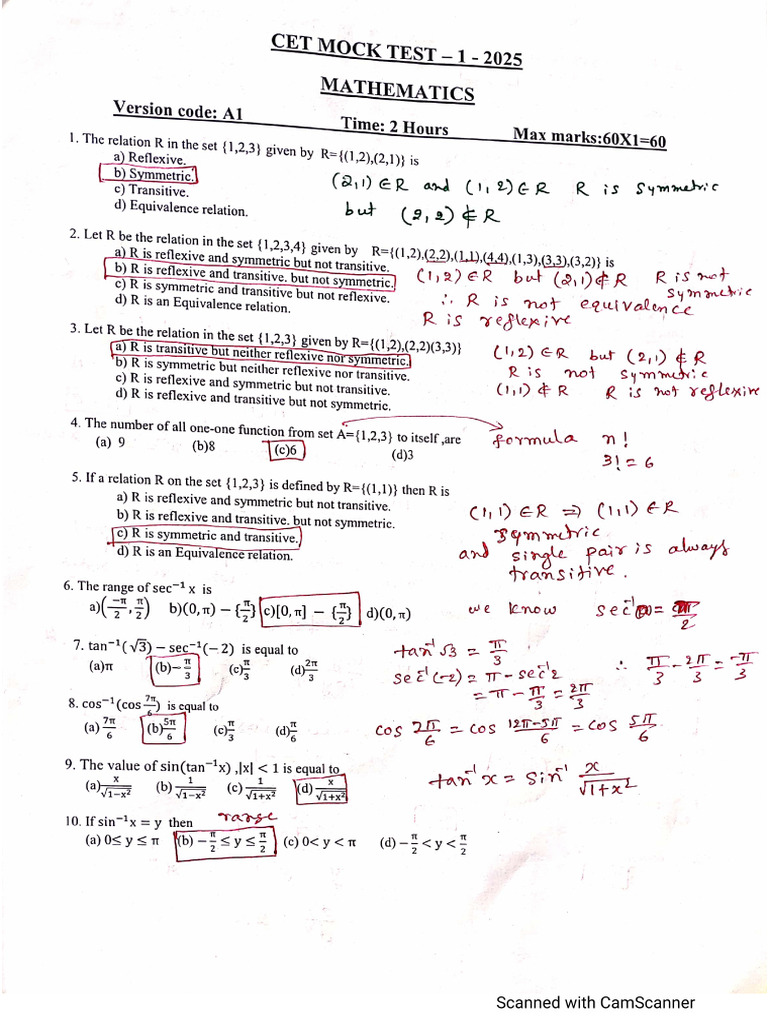 CET MOCK TEST – 1 - 2025
MATHEMATICS
Version code: A1 Time: 2 Hours Max marks:60X1=60
1. The relation R in the set {1,2,3} given by R={(1,2),(2,1)} is
a) Reflexive.
b) Symmetric.
c) Transitive.
d) Equivalence relation.
(2,1) ∈ R and (1,2) ∈ R R is symmetric
but (2,2) ∉ R
2. Let R be the relation in the set {1,2,3,4} given by R={(1,2),(2,2),(1,1),(4,4),(1,3),(3,3),(3,2)} is
a) R is reflexive and symmetric but not transitive.
b) R is reflexive and transitive. but not symmetric.
c) R is symmetric and transitive but not reflexive.
d) R is an Equivalence relation.
(1,2) ∈ R but (2,1) ∉ R R is not
symmetric
∴ R is not equivalence
R is reflexive
3. Let R be the relation in the set {1,2,3} given by R={(1,2),(2,2)(3,3)}
a) R is transitive but neither reflexive nor symmetric.
b) R is symmetric but neither reflexive nor transitive.
c) R is reflexive and symmetric but not transitive.
d) R is reflexive and transitive but not symmetric.
(1,2) ∈ R but (2,1) ∉ R
R is not symmetric
(1,1) ∉ R R is not reflexive
4. The number of all one-one function from set A={1,2,3} to itself ,are
(a) 9 (b)8 (c)6 (d)3
formula n!
3! = 6
5. If a relation R on the set {1,2,3} is defined by R={(1,1)} then R is
a) R is reflexive and symmetric but not transitive.
b) R is reflexive and transitive. but not symmetric.
c) R is symmetric and transitive.
d) R is an Equivalence relation.
(1,1) ∈ R ⇒ (1,1) ∈ R
symmetric
and single pair is always
transitive.
6. The range of sec⁻¹ x is
a)(−π/2, π/2) b)(0, π) − {π/2} c)[0, π] − {π/2} d)(0, π)
we know sec⁻¹ = π/2
7. tan⁻¹(√3) − sec⁻¹(−2) is equal to
(a)π (b)−π/3 (c)π/3 (d)2π/3
tan⁻¹ √3 = π/3
sec⁻¹(-2) = π - sec⁻¹ 2
= π - π/3 = 2π/3
∴ π/3 - 2π/3 = -π/3
8. cos⁻¹(cos 7π/6) is equal to
(a) 7π/6 (b)5π/6 (c)π/3 (d)π/6
cos 7π/6 = cos 12π-5π/6 = cos 5π/6
9. The value of sin(tan⁻¹x) ,|x| < 1 is equal to
(a) x/√1−x² (b) 1/√1−x² (c) 1/√1+x² (d) x/√1+x²
tan⁻¹ x = sin⁻¹ x/√1+x²
10. If sin⁻¹x = y then range
(a) 0≤ y ≤ π (b) −π/2 ≤ y ≤ π/2 (c) 0< y < π (d) −π/2 < y < π/2
Scanned with CamScanner